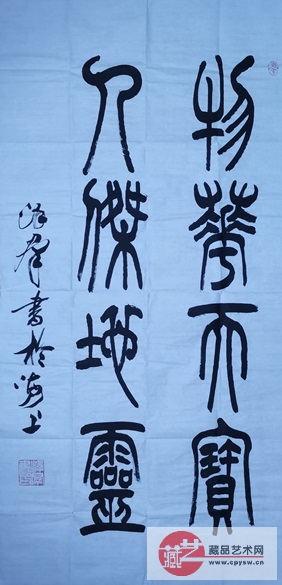 物華天寶
人傑地靈
書於海上
藏品艺术网
www.cpysw.cn